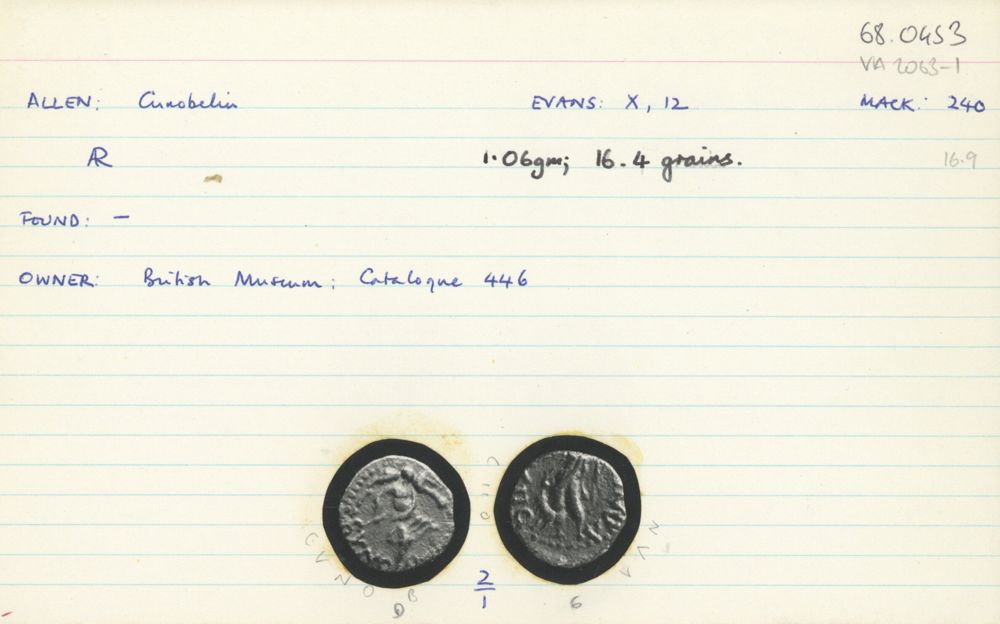 68.0453
VA 2063-1
ALLEN: Cunobelin EVANS: X, 12 MACK: 240
AR 1.06gm; 16.4 grains. 16.9
FOUND: –
OWNER: British Museum; Catalogue 446
CVNOB
D
2/1
6